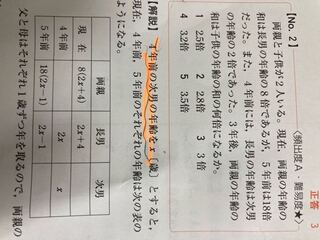 正答 3
【No. 2】 〈頻出度A・難易度★〉
両親と子供が2人いる。現在、両親の年齢の
和は長男の年齢の8倍であるが、5年前は18倍
だった。また、4年前には、長男の年齢は次男
の年齢の2倍であった。3年後、両親の年齢の
和は子供の年齢の和の何倍になるか。
1 2.5倍 2 2.8倍 3 3倍
4 3.2倍 5 3.5倍
【解説】 4年前の次男の年齢をx〔歳〕とすると、
現在、4年前、5年前のそれぞれの年齢は次の表の
ようになる。
両親 長男 次男
現在 8(2x+4) 2x+4
4年前 2x x
5年前 18(2x-1) 2x-1
父と母はそれぞれ1歳ずつ年を取るので、両親の